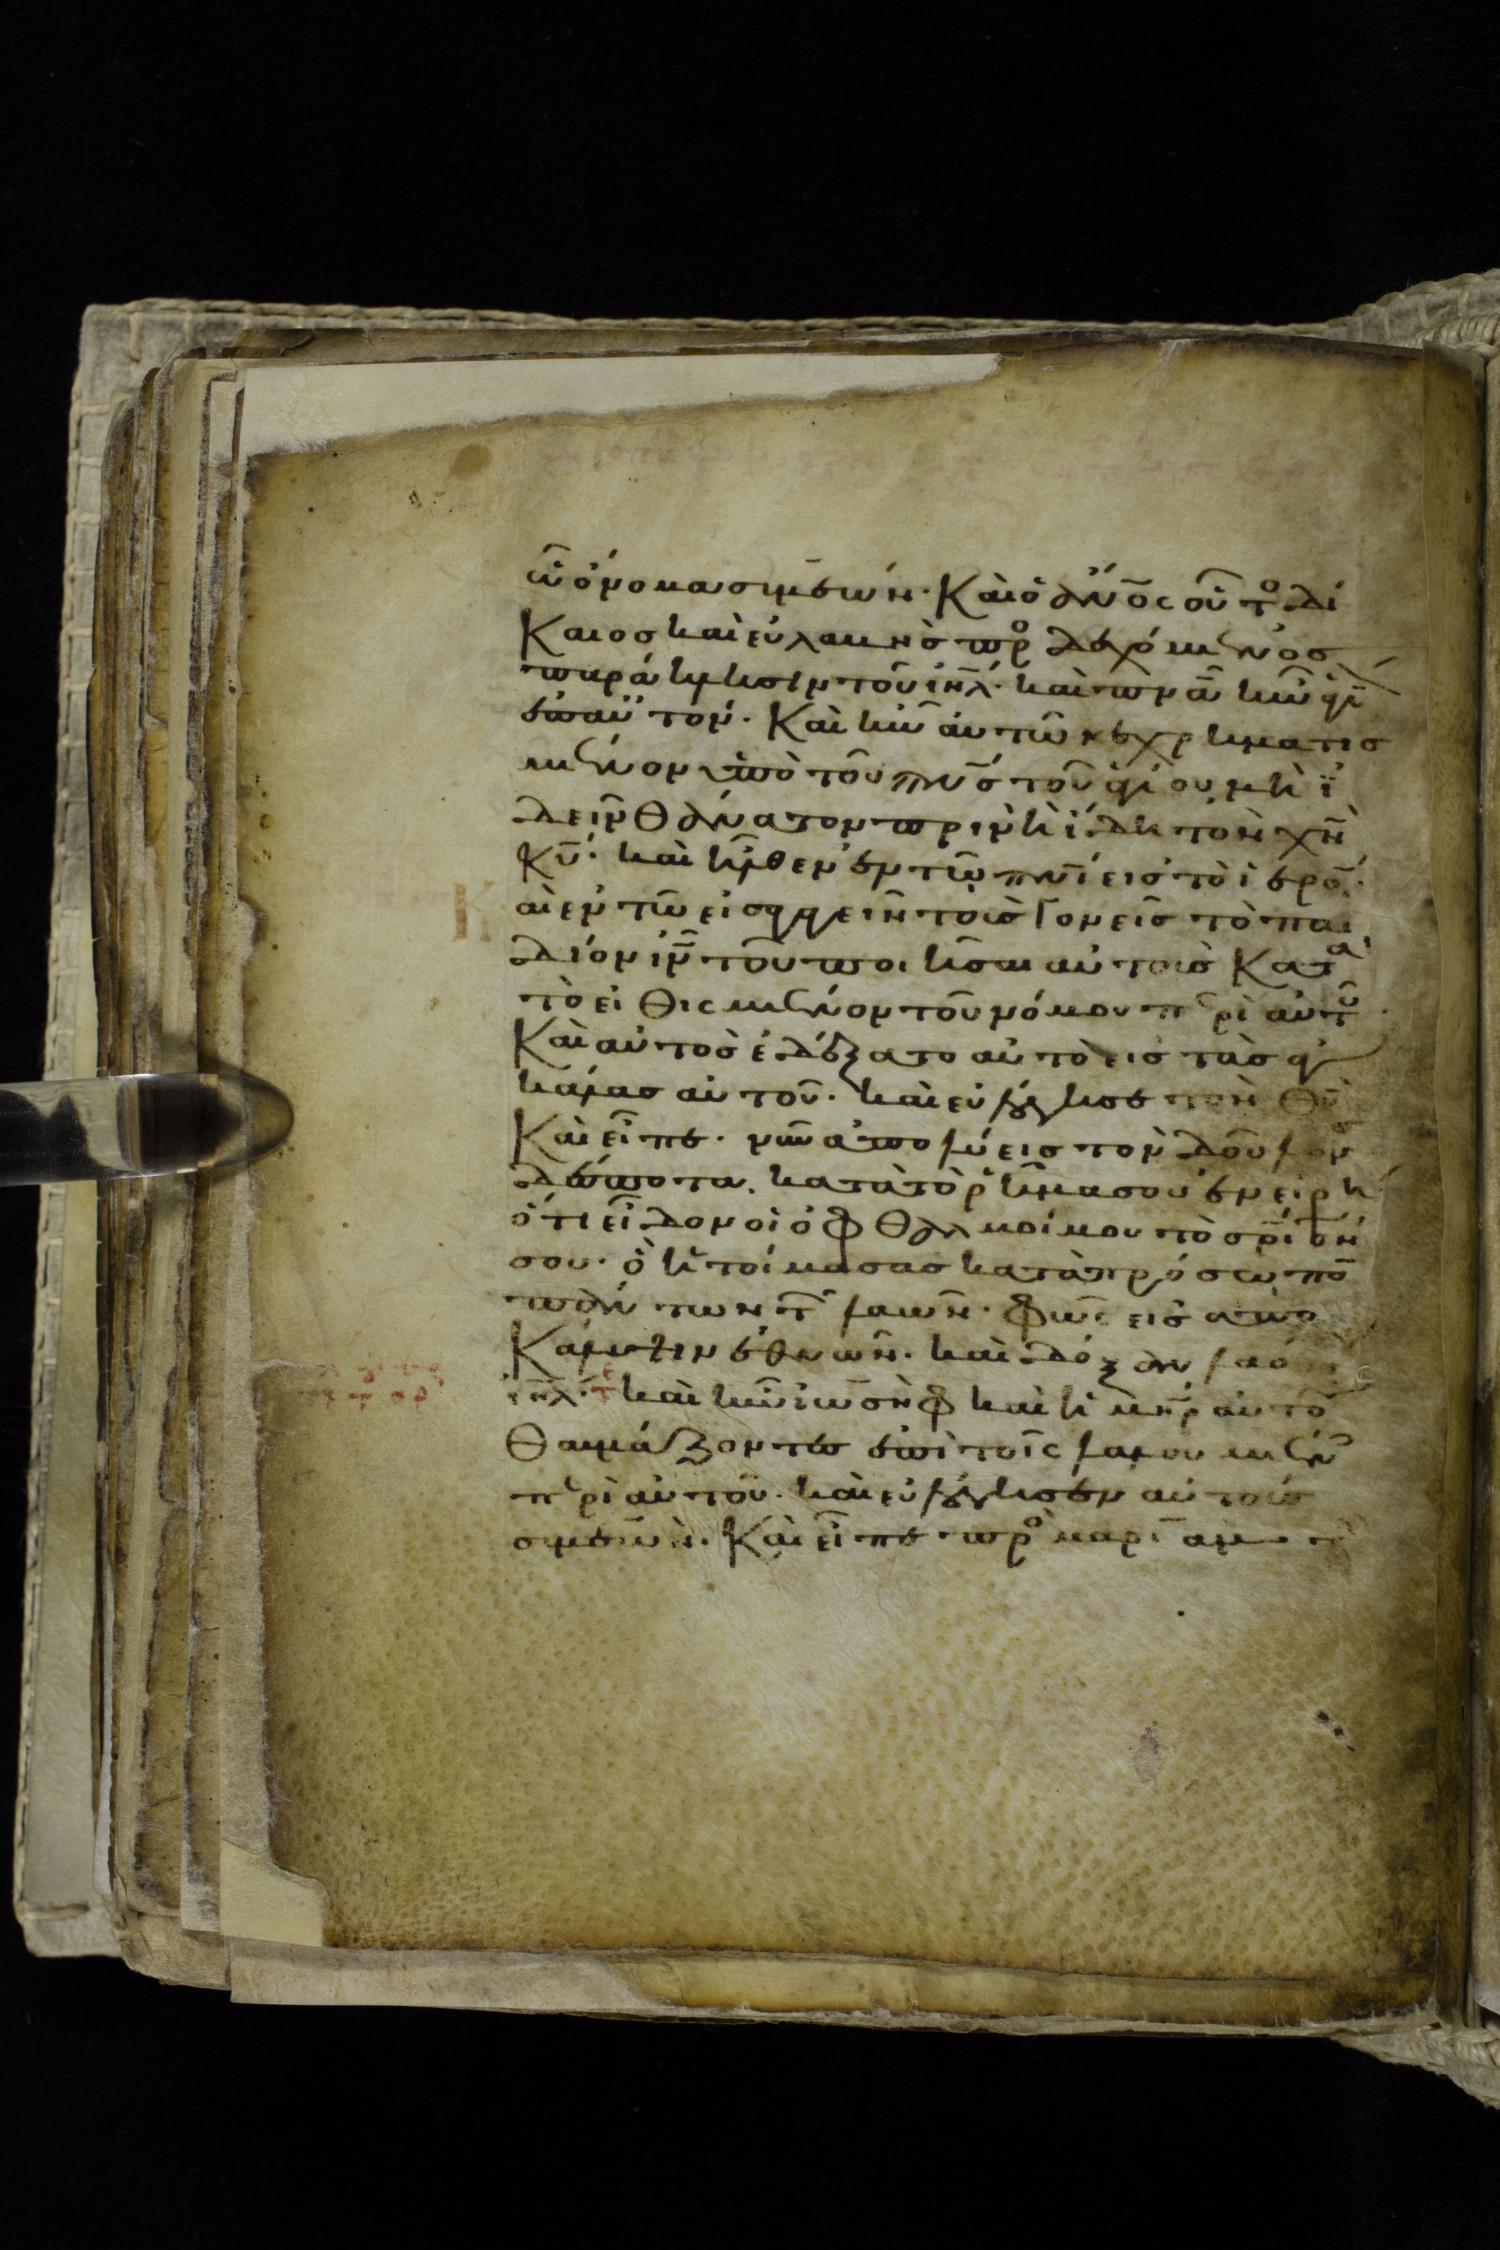 ὧ ὄνομα σιμεών· Καὶ ὁ ἄνος οὗτο δί
Καιος καὶ εὐλαβὴς προσδεχόμενος
παράκλησιν τοῦ ιηλ· καὶ πνα ἦν ἅγι
ἐπ αὐτόν· Καὶ ἦν αὐτῶ κεχρηματισ
μένον ὑπὸ τοῦ πνς τοῦ ἁγίου μὴ ἰ
δεῖν θάνατον πρὶν ἢ ἴδη τὸν χν
κυ· καὶ ἦλθεν ἐν τῶ πνι εἰς τὸ ἱερο·
Κ αὶ ἐν τῶ εἰσαγαγεῖν τοὺς γονεῖς τὸ παι
δίον ιν τοῦ ποιῆσαι αὐτοὺς Κατα
τὸ εἰθισμένον τοῦ νόμου περὶ αὐτου
Καὶ αὐτὸς ἐδέξατο αὐτὸ εἰς τὰς ἀγ
κάλας αὐτοῦ· καὶ εὐλόγησε τὸν θν
Καὶ εἶπε· νῦν ἀπολύεις τὸν δοῦλον
δέσποτα. κατὰ τὸ ῥῆμα σου ἐν εἰρή
ὅτι εἶδον οἱ ὀφθαλμοί μου τὸ σριόν
σου· ὃ ἡτοίμασας κατὰ πρόσωπο
πάντων τ λαῶν· φῶς εἰς ἀπο
Κάλυψιν ἐθνῶν. καὶ δόξαν λαο
ιηλ· καὶ ἦν ἰωσὴφ καὶ ἡ μηρ αὐτο
Θαυμάζοντες ἐπὶ τοῖς λαλουμέν
περὶ αὐτοῦ. καὶ εὐλόγησεν αὐτοὺς
σιμεών. Καὶ εἶπε προ μαριαμ τ